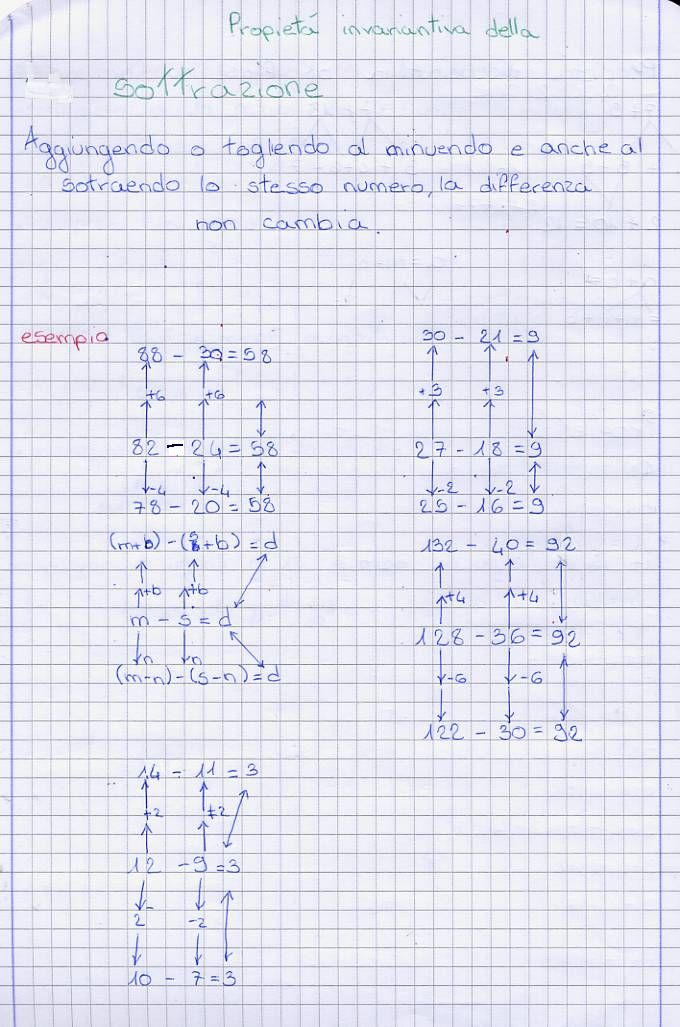 Propietá invariantiva della
sottrazione
Aggiungendo o toglendo al minuendo e anche al
sotraendo lo stesso numero, la differenza
non cambia.
esempio
88 - 30 = 58
+6 +6
82 - 24 = 58
-4 -4
78 - 20 = 58
30 - 21 = 9
+3 +3
27 - 18 = 9
-2 -2
25 - 16 = 9
(m+b) - (s+b) = d
+b +b
m - s = d
n n
(m-n) - (s-n) = d
132 - 40 = 92
+4 +4
128 - 36 = 92
-6 -6
122 - 30 = 92
14 - 11 = 3
+2 +2
12 - 9 = 3
-
2 -2
10 - 7 = 3